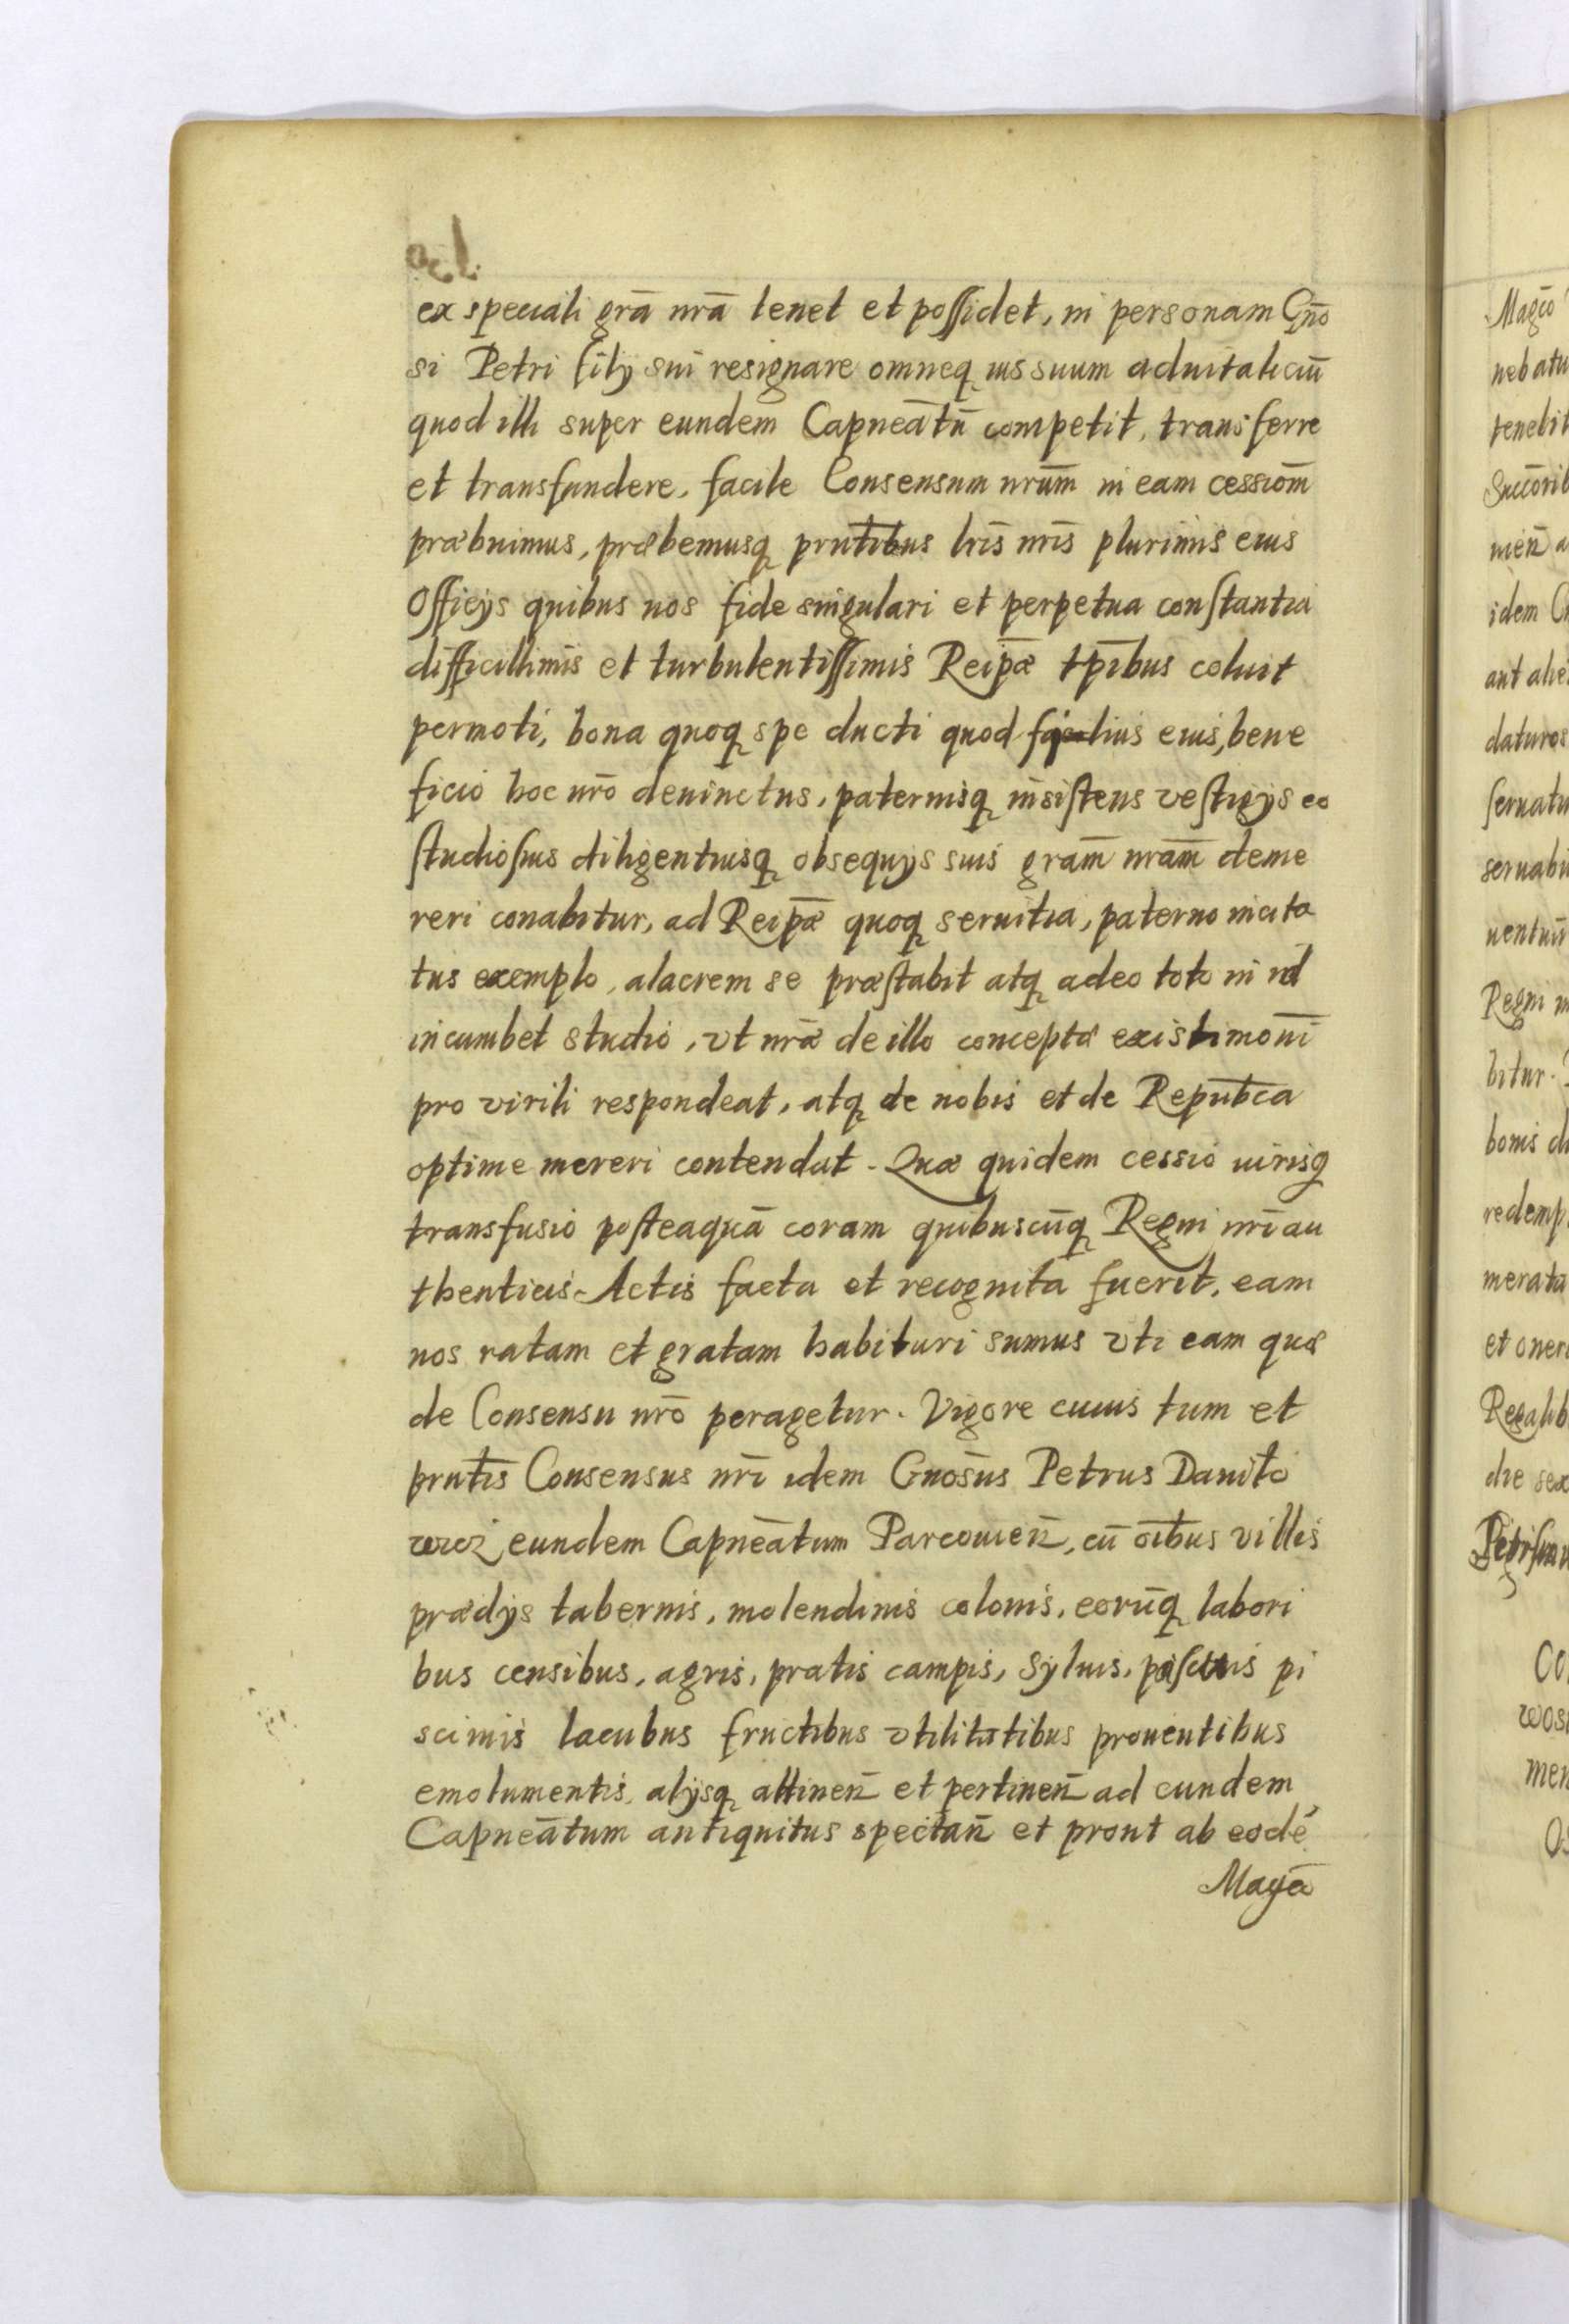 ex speciali grā nrā tenet et possidet, in personam Gn̄o
si Petri filij sui resignare omneq ius suum aduitaliciū
quod illi super eundem Capneātū competit, transferre
et transfundere, facile Consensum nrūm in eam cessiom̄
præbuimus, præbemusq prntibus lrīs nrīs plurimis eius
Officijs quibus nos fide singulari et perpetua constantia
difficillimis et turbulentissimis Reipǣ tp̄ibus coluit
permoti, bona quoq spe ducti quod filius eius, bene
ficio hoc nrō deuinctus, paternisq insistens vestigijs eo
studiosius diligentiusq obsequijs suis grām nrām deme
reri conabitur, ad Reipǣ quoq seruitia, paterno incita
tus exemplo, alacrem se præstabit atq adeo toto in id
incumbet studio, vt nrǣ de illo conceptæ existimoni̅
pro virili respondeat, atq de nobis et de Repub̄ca
optime mereri contendat. Quæ quidem cessio iurisq
transfusio posteaquā coram quibuscūq Regni nrī au
thenticis Actis facta et recognita fuerit, eam
nos ratam et gratam habituri sumus vti eam quæ
de Consensu nrō peragetur. Vigore cuius tum et
prntis̄ Consensus nrī idem Gnos̄us Petrus Danilo
wicz eundem Capneātum Parcouien̄, cū oībus villis
prædijs tabernis, molendinis colonis, eorūq labori
bus censibus, agris, pratis campis, syluis, pascuis pi
scinis lacubus fructibus vtilitatibus prouentibus
emolumentis, alijsq attinen̄ et pertinen̄ ad eundem
Capneātum antiquitus spectan̄ et prout ab eodē
Magcō
Magcō
tenebit
Succōrib
idem
daturos
seruatu
seruabi
Regni
bitur.
bonis
redemp
merata
et oner
Regalib
die sex